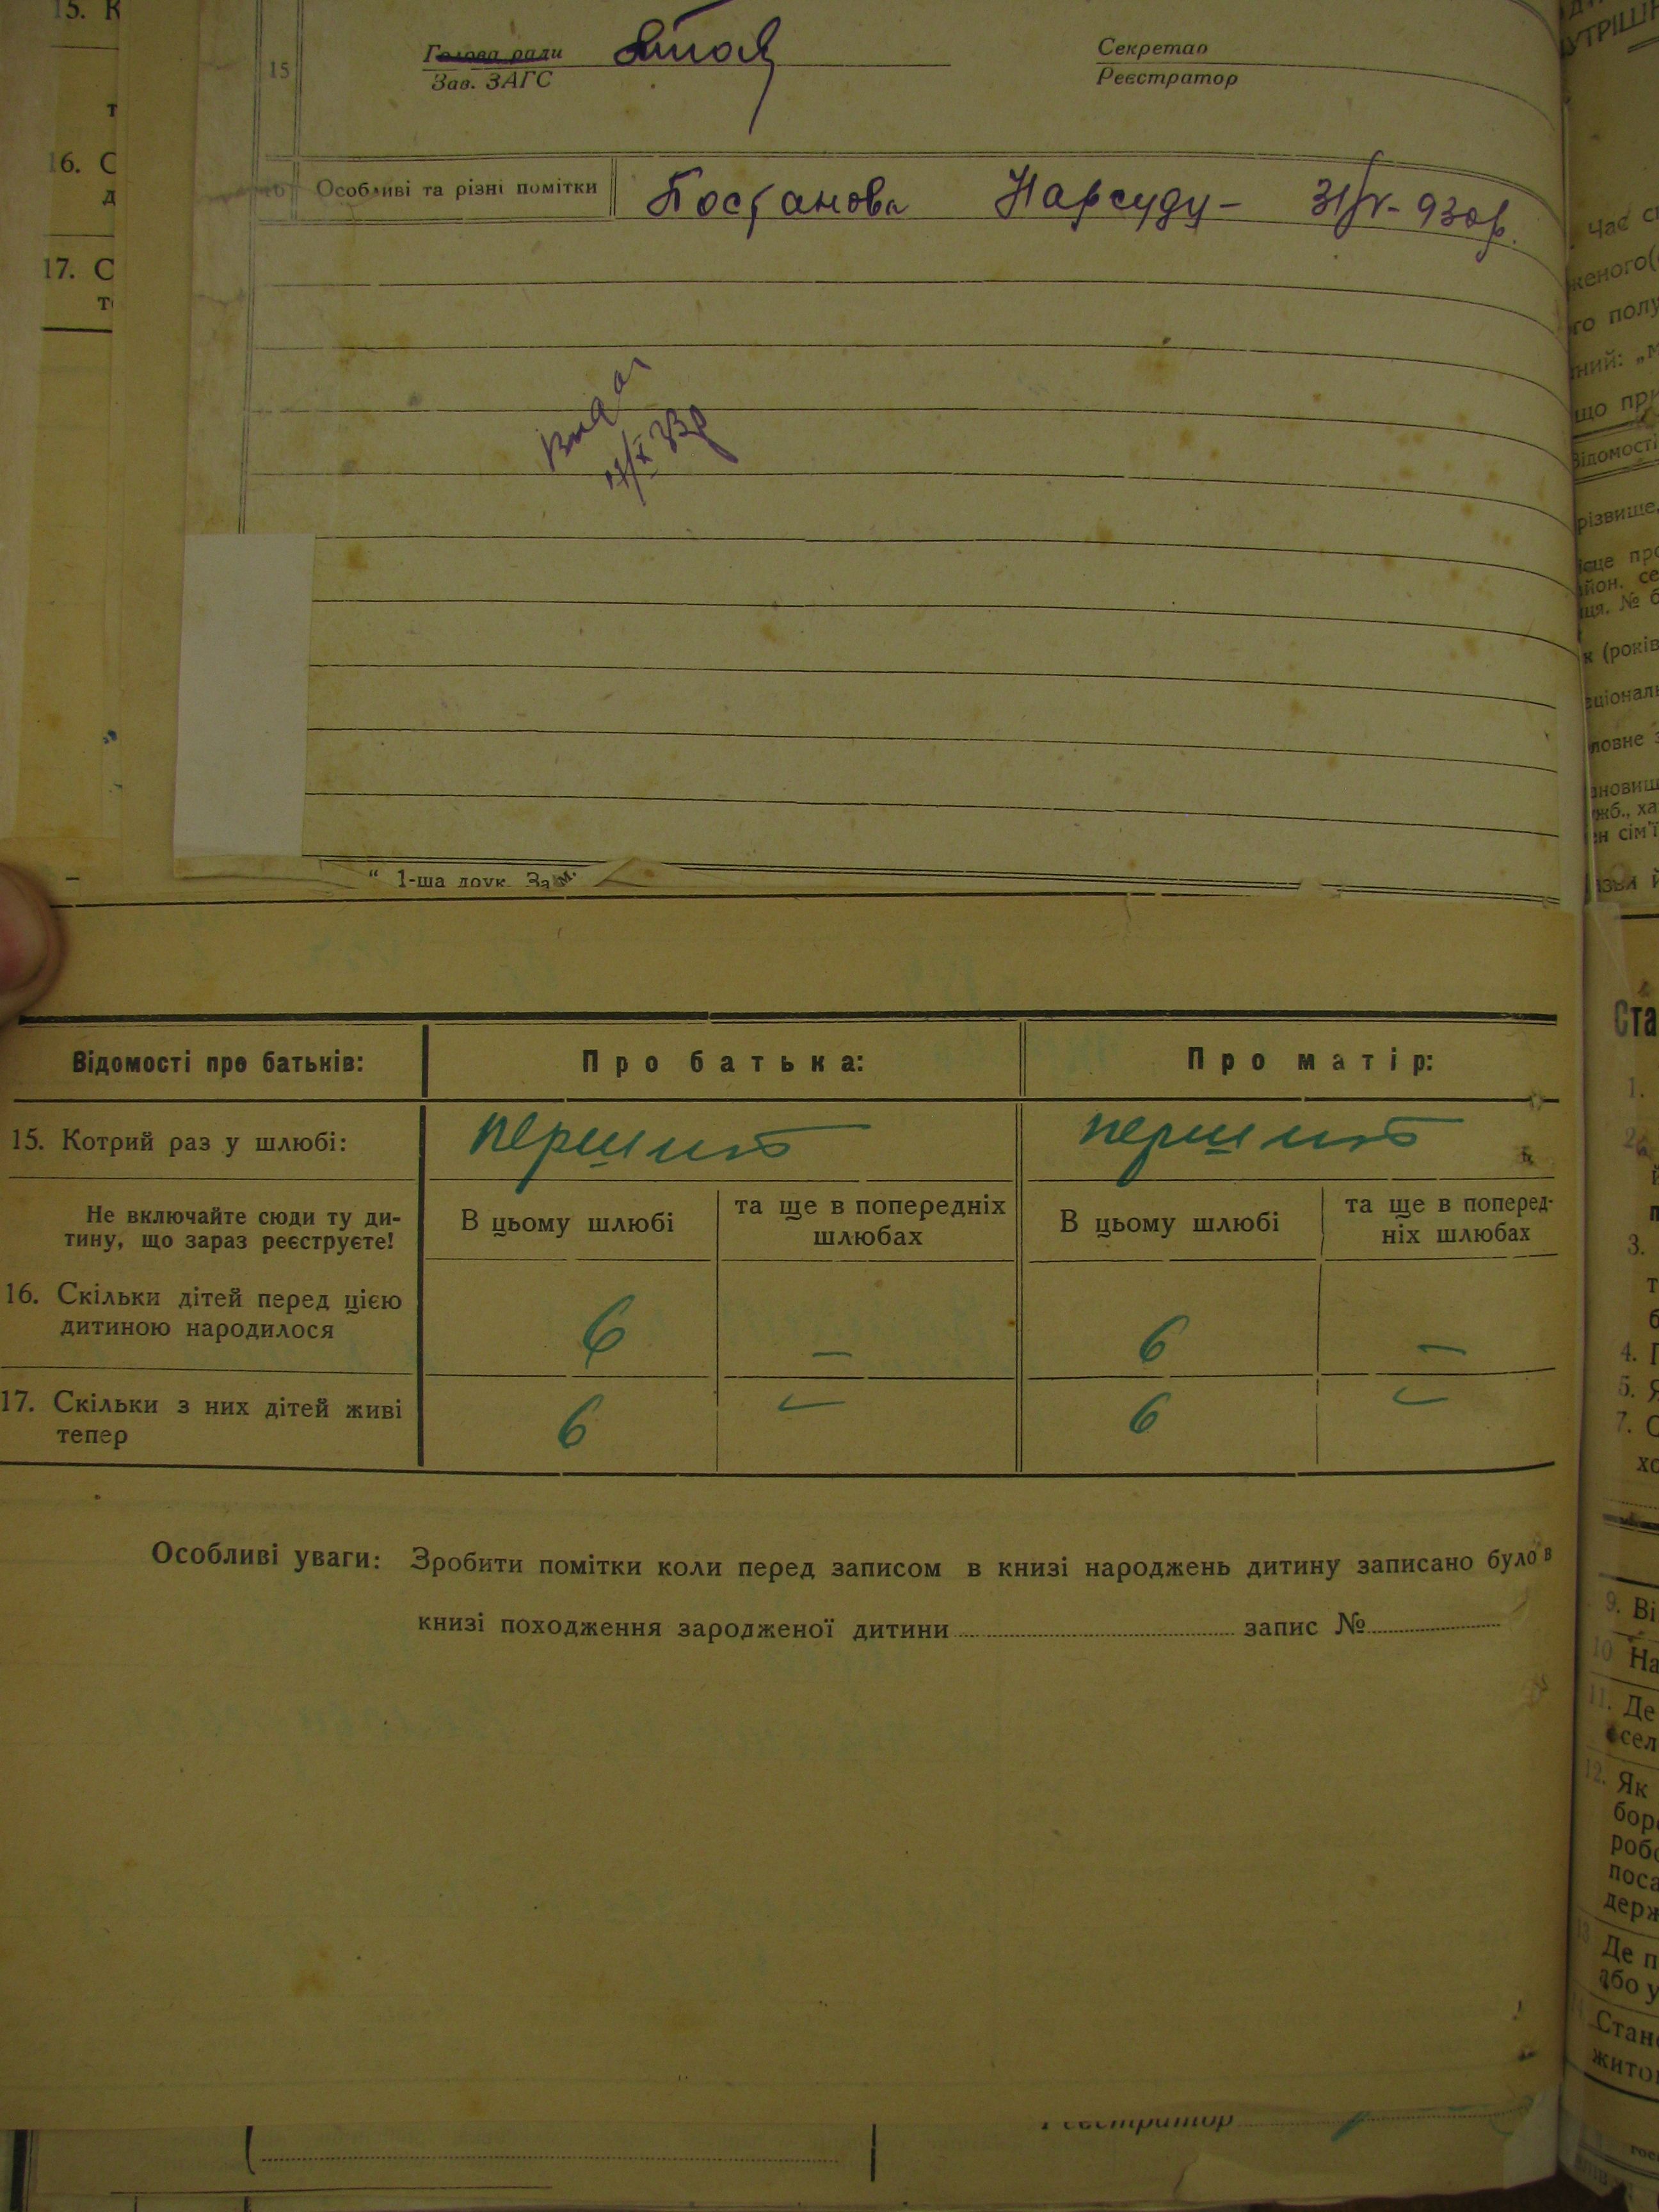 15
Голова ради
Зав. ЗАГС
Секретар
Реєстратор
Особливі та різні помітки
Постанова Нарсуду - 31/V - 930 р.
" 1-ша друк. За
Відомості про батьків: Про батька: Про матір:
15. Котрий раз у шлюбі: перший перший
Не включайте сюди ту ди-
тину, що зараз реєструєте!
В цьому шлюбі
та ще в попередніх
шлюбах
В цьому шлюбі
та ще в поперед-
ніх шлюбах
16. Скільки дітей перед цією
дитиною народилося
6 — 6 —
17. Скільки з них дітей живі
тепер
6 — 6 —
Особливі уваги: Зробити помітки коли перед записом в книзі народжень дитину записано було в
книзі походження зародженої дитини запис №
Реєстратор
15. К
16. С
д
17. С
УТРІШН
Час с
женого(
го полу
ний: „м
що при
Відомості
різвище,
сце про
йон. се
ця. № б
к (років
ціональ
ловне з
ановищ
жб., ха
н сім'ї
Ста
1.
3.
4. П
5. Я
7. С
хо
9. Ві
10 На
11. Де
сел
12. Як
бор
роб
поса
держ
Де п
або у
Стан
жито